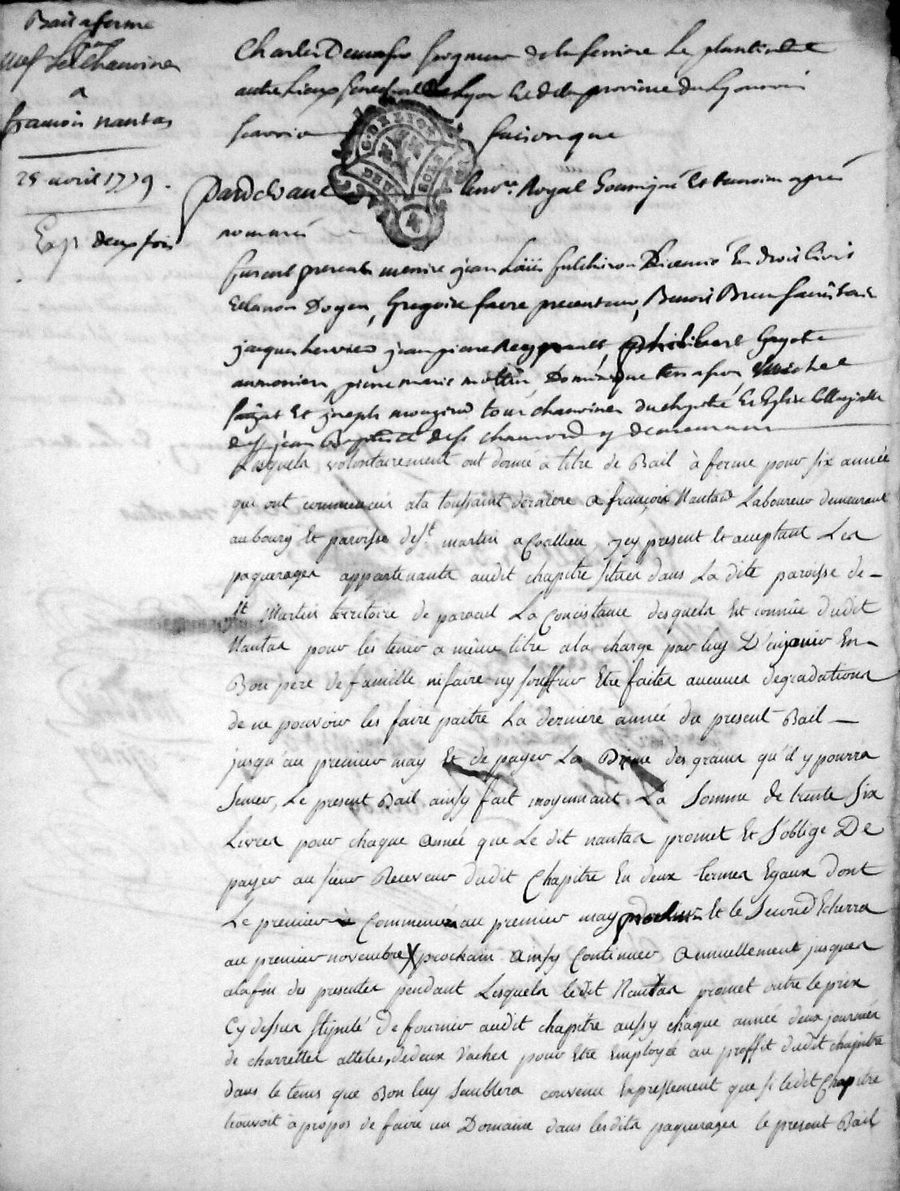 Bail a ferme
Mrs les Chanoines
a
francois nantas
25 avril 1779.
Exp. deux fois
Charles Demasso seigneur de la ferriere Le plantin et
autre Lieux senechal de Lyon et de la province du Lyonnois
scavoir faisons que
G. DE LYON
DEUX SOLS
Pardevant Royal soussigné et temoins après
nommés
furent presents messire jean Louis fulchiron Licencié En droits civil
et canon Doyen, Gregoire favre precenteur, Benoit
jacques jean pierre philibert Gayot
aumonier, pierre marie Dominique michel
et joseph tous chanoines du chapitre et Eglise collegialle
de st jean Baptiste de st chamond y demeurants
Lesquels volontairement ont donné a titre de Bail à ferme pour six année
qui ont commencées ala toussaint derniere a françois Nantas Laboureur demeurant
au bourg et paroisse de st. martin a Coallieu jcy present et acceptant Les
paquerages appartenants audit chapitre situés dans La dite paroisse de
st Martin territoire de La Concistance desquels est connüe dudit
Nantas pour les tenir a même titre ala charge par luy D'en jouir En
Bon pere de famille ni faire ny souffrir Etre faites aucunes degradations
de ne pouvoir les faire paitre La derniere année du present Bail
jusqu au premier may Et de payer La Dixme des grains qu'il y pourra
semer, Le present Bail ainsy fait moyennant La somme de trente six
Livres pour chaque année que Le dit nantas promet Et s'oblige De
payer au sieur Receveur dudit Chapitre En deux termes Egaux dont
Le premier à Commencer au premier may prochain Et le second Echerra
au premier novembre prochain ainsy Continuer annuellement jusques
alafin des presentes pendant Lesquels ledit Nantas promet outre le prix
Cy dessus stipulé De fournir audit chapitre aussy chaque année deux journées
de charrettes attelées de deux vaches pour Etre Employé au proffit dudit chapitre
dans le tems que Bon luy semblera convenu Expressement que si ledit Chapitre
trouvoit à propos de faire un Domaine dans lesdits paquerages le present Bail